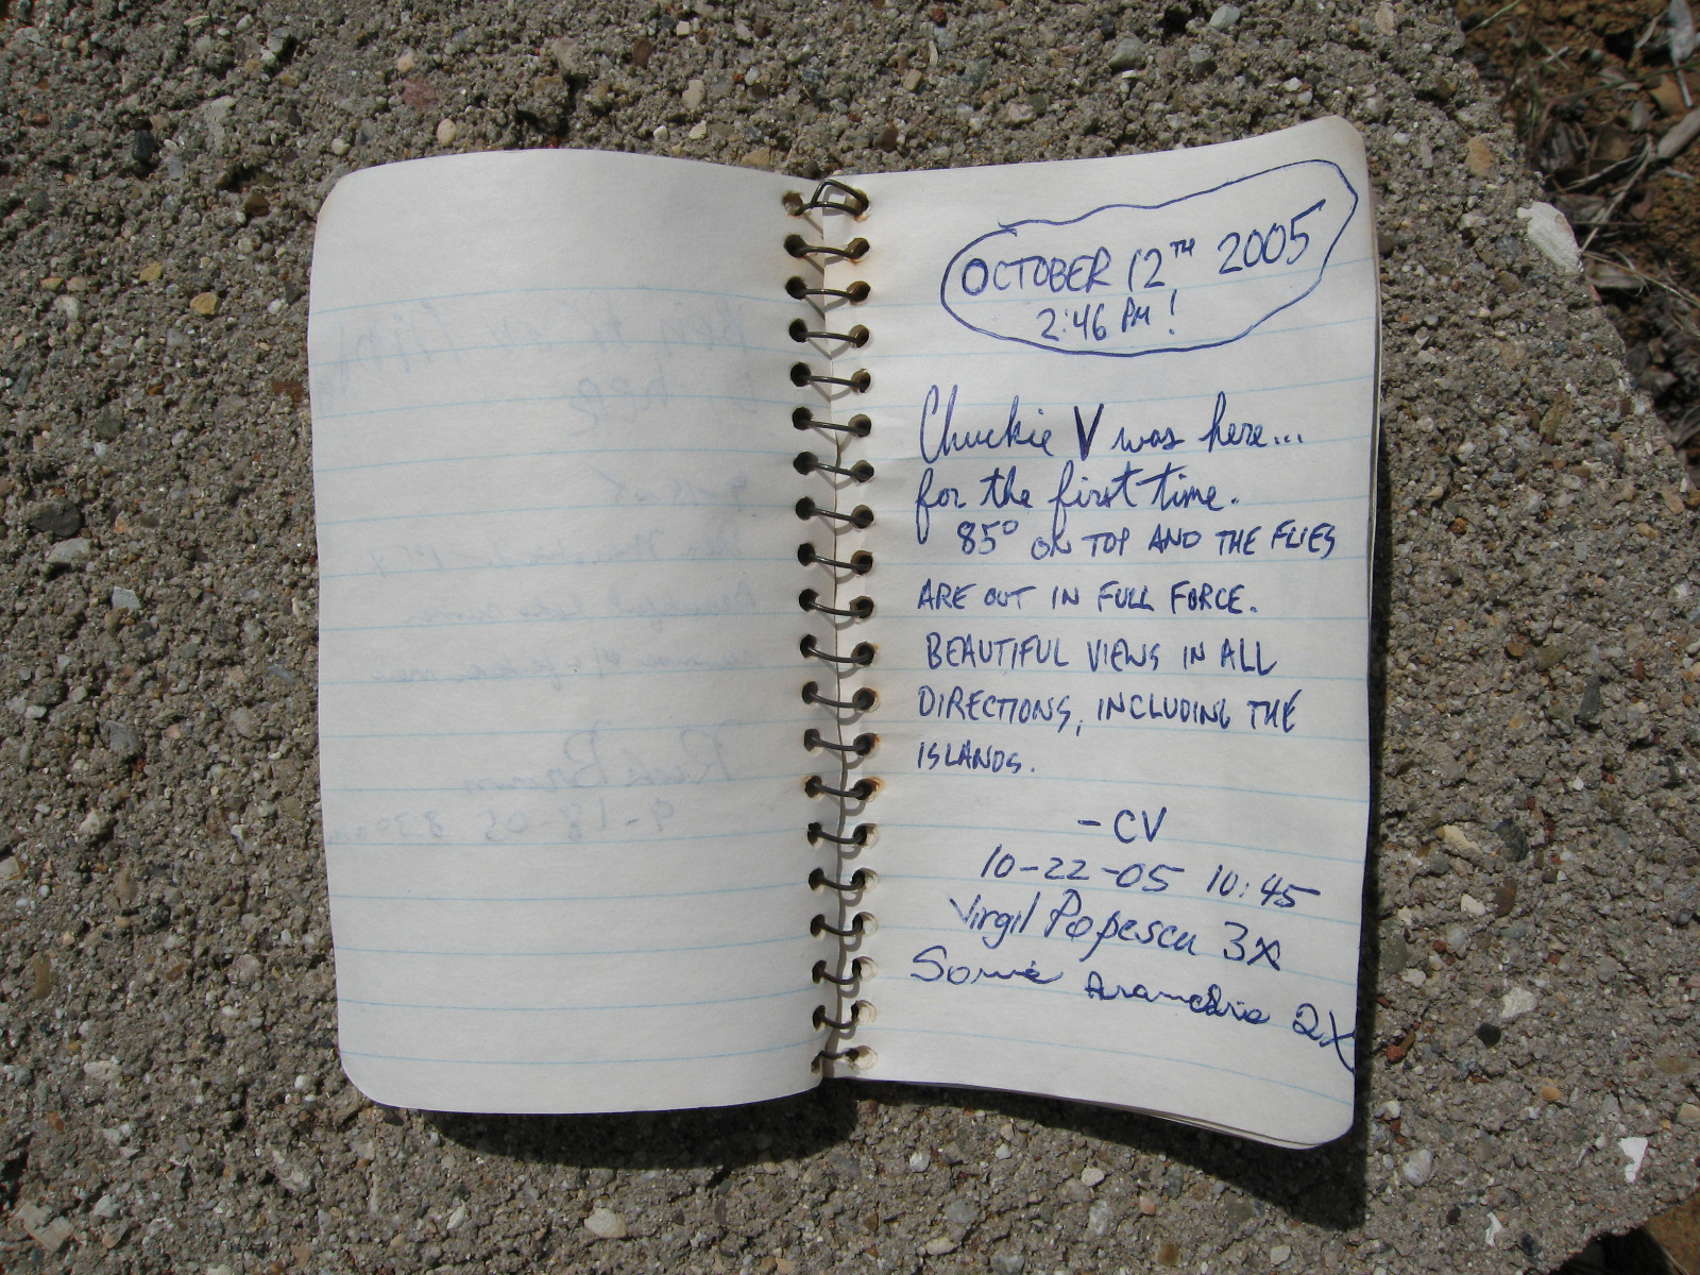 OCTOBER 12TH 2005
2:46 PM!
Chuckie V was here...
for the first time.
85° ON TOP AND THE FLIES
ARE OUT IN FULL FORCE.
BEAUTIFUL VIEWS IN ALL
DIRECTIONS, INCLUDING THE
ISLANDS.
- CV
10-22-05 10:45
Virgil Popescu 3x
2x